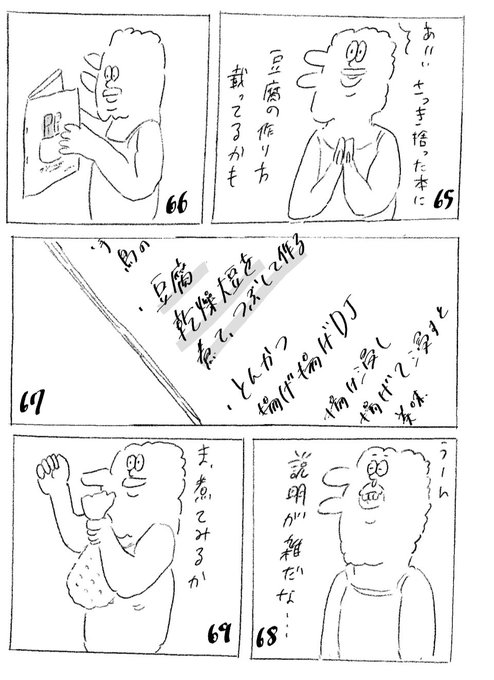 あ！！！
さっき拾った本に
豆腐の作り方
載ってるかも
65
66
鳥の
・豆腐
乾燥大豆を
煮て、つぶして作る
・とんかつ
揚げ揚げDJ
揚げ浸し
揚げて浸すと
美味
67
うーん
説明が雑だな…
68
ま、煮てみるか
69